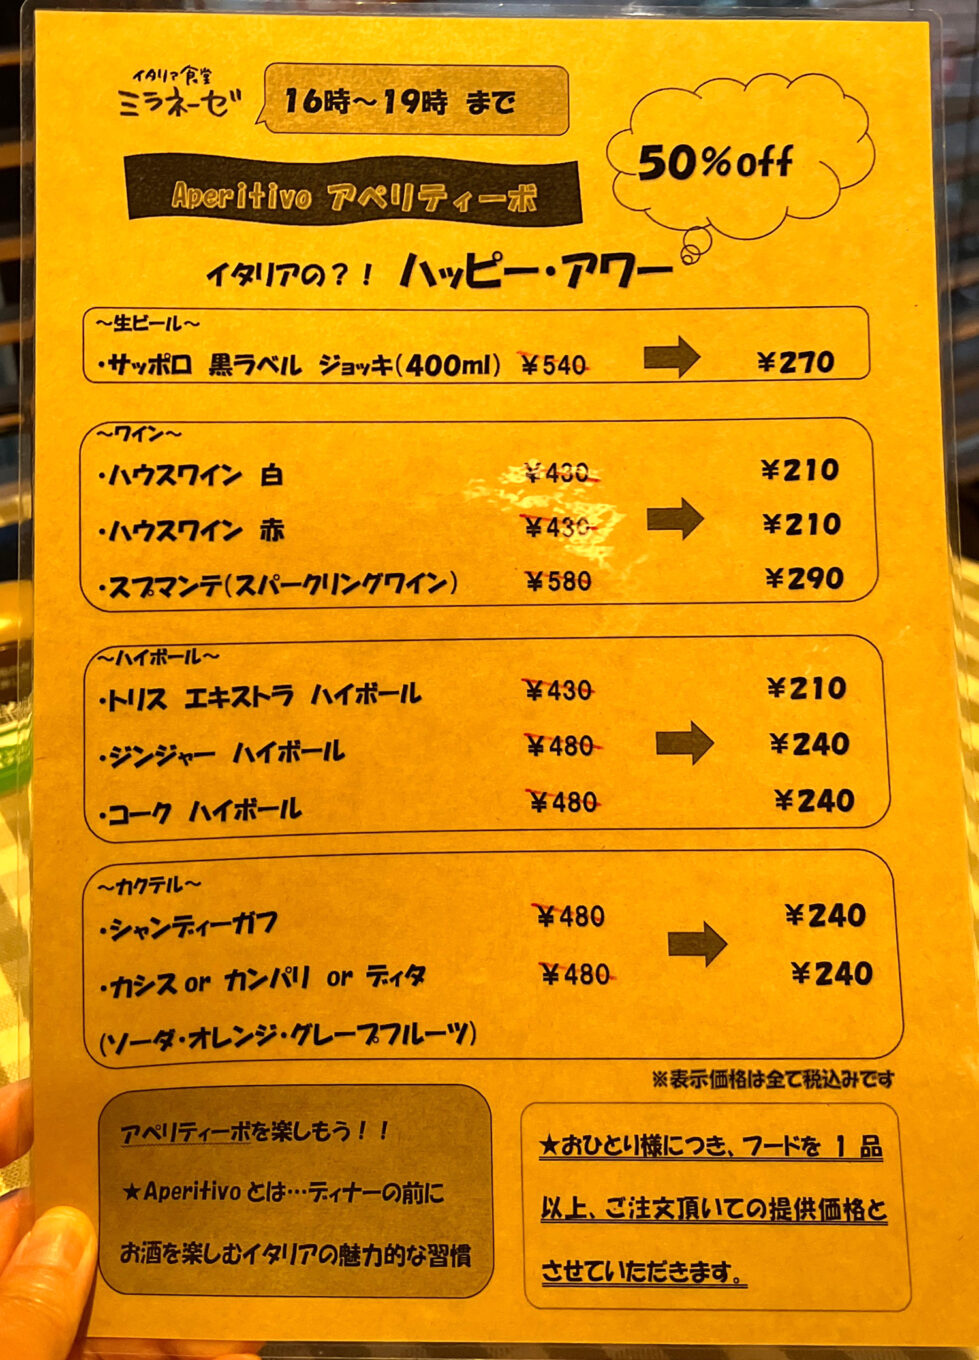 イタリア食堂
ミラネーゼ
16時～19時 まで
50%off
Aperitivo アペリティーボ
イタリアの？！ ハッピー・アワー
～生ビール～
・サッポロ 黒ラベル ジョッキ(400ml) ¥540 ¥270
～ワイン～
・ハウスワイン 白 ¥430 ¥210
・ハウスワイン 赤 ¥430 ¥210
・スプマンテ(スパークリングワイン) ¥580 ¥290
～ハイボール～
・トリス エキストラ ハイボール ¥430 ¥210
・ジンジャー ハイボール ¥480 ¥240
・コーク ハイボール ¥480 ¥240
～カクテル～
・シャンディーガフ ¥480 ¥240
・カシス or カンパリ or ディタ ¥480 ¥240
(ソーダ・オレンジ・グレープフルーツ)
※表示価格は全て税込みです
アペリティーボを楽しもう！！
★Aperitivoとは…ディナーの前に
お酒を楽しむイタリアの魅力的な習慣
★おひとり様につき、フードを 1 品
以上、ご注文頂いての提供価格と
させていただきます。